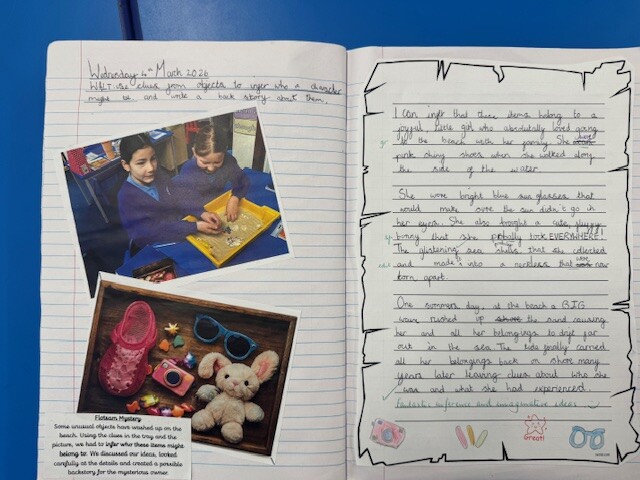 Wednesday 4th March 2026
WALT: use clues from objects to infer who a character
might be and write a back story about them.
Flotsam Mystery
Some unusual objects have washed up on the
beach. Using the clues in the tray and the
picture, we had to infer who these items might
belong to. We discussed our ideas, looked
carefully at the details and created a possible
backstory for the mysterious owner.
I can infer that these items belong to a
joyful, little girl who absolutally loved going
to the beach with her family. She wore
pink shiny shoes when she walked along
the side of the water.
She wore bright blue sun glasses that
would make sure the sun didn't go in
her eyes. She also brought a cute, fluffy
bunny that she took EVERYWHERE!
The glistening sea shells that she collected
and made into a neckless that were now
torn apart.
One summers day, at the beach a BIG
wave rushed up the sand causing
her and all her belongings to drift far
out in the sea. The tide finally carried
all her belongings back on shore many
years later leaving clues about who she
was and what she had experienced.
Fantastic inference and imaginative ideas
Great!